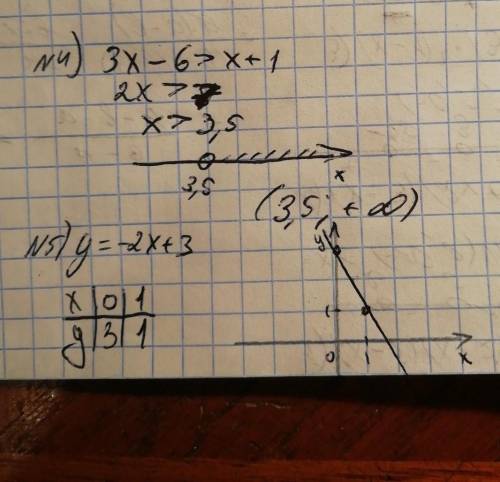 N4) 3x-6>x+1
2x>7
x>3,5
3,5
x
(3,5; +∞)
N5) y=-2x+3
x 0 1
y 3 1
y
1
0 1 x